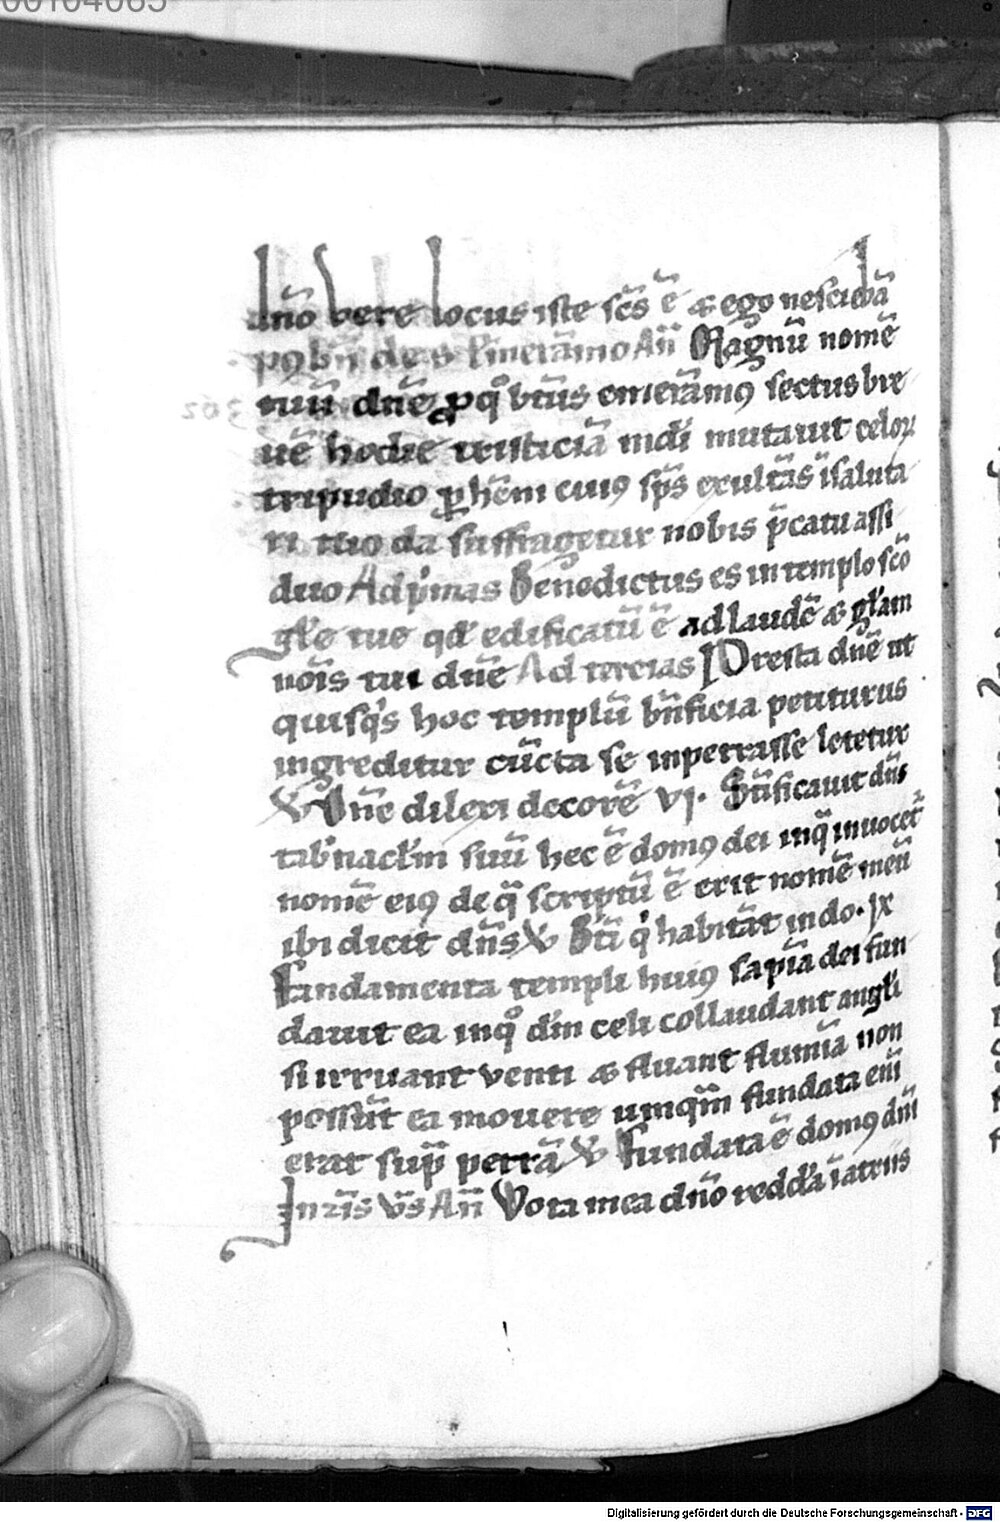 00104085
dn̄o Vere locus iste sc̄s ē ⁊ ego nesciebā
p9 bn̄ de s Emerāmo An̄ Magnū nomē
tuū dn̄e ꝓ qͦ btūs emerāmꝰ sectus bre
uē hodie tristiciā mdi mutauit celoꝝ
tripudio ꝑhēm cuiꝰ sp̄s exultās ī saluta
ri tuo da suffragetur nobis p̄catu assi
duo Ad p̄mas Benedictus es in templo scō
gl̄e tue qd̄ edificatū ē ad laudē ⁊ gl̄am
nōis tui dn̄e Ad tercias Presta dn̄e ut
quisqͥs hoc templū bn̄ficia petiturus
ingreditur cūcta se inpetrasse letetur
V Dn̄e dilexi decorē vj. Sc̄ificauit dn̄s
tab̄nacl̄m suū hec ē domꝰ dei inq̄ inuocet̄
nomē eiꝰ de q̄ scriptū ē erit nomē meū
ibi dicit dn̄s V Bt̄i qͥ habitāt in do. jx
Fundamenta templi huiꝰ sapīa dei fun
dauit ea inqͦ dm̄ celi collaudant angl̄i
si irruant venti ⁊ fluant flumīa non
possūt ea mouere umqm̄ fundata em̄
erat sup̄ petrā V Fundata ē domꝰ dn̄i
In ij is vs̄ An̄ Vota mea dn̄o reddā ī atriis
Digitalisierung gefördert durch die Deutsche Forschungsgemeinschaft - DFG